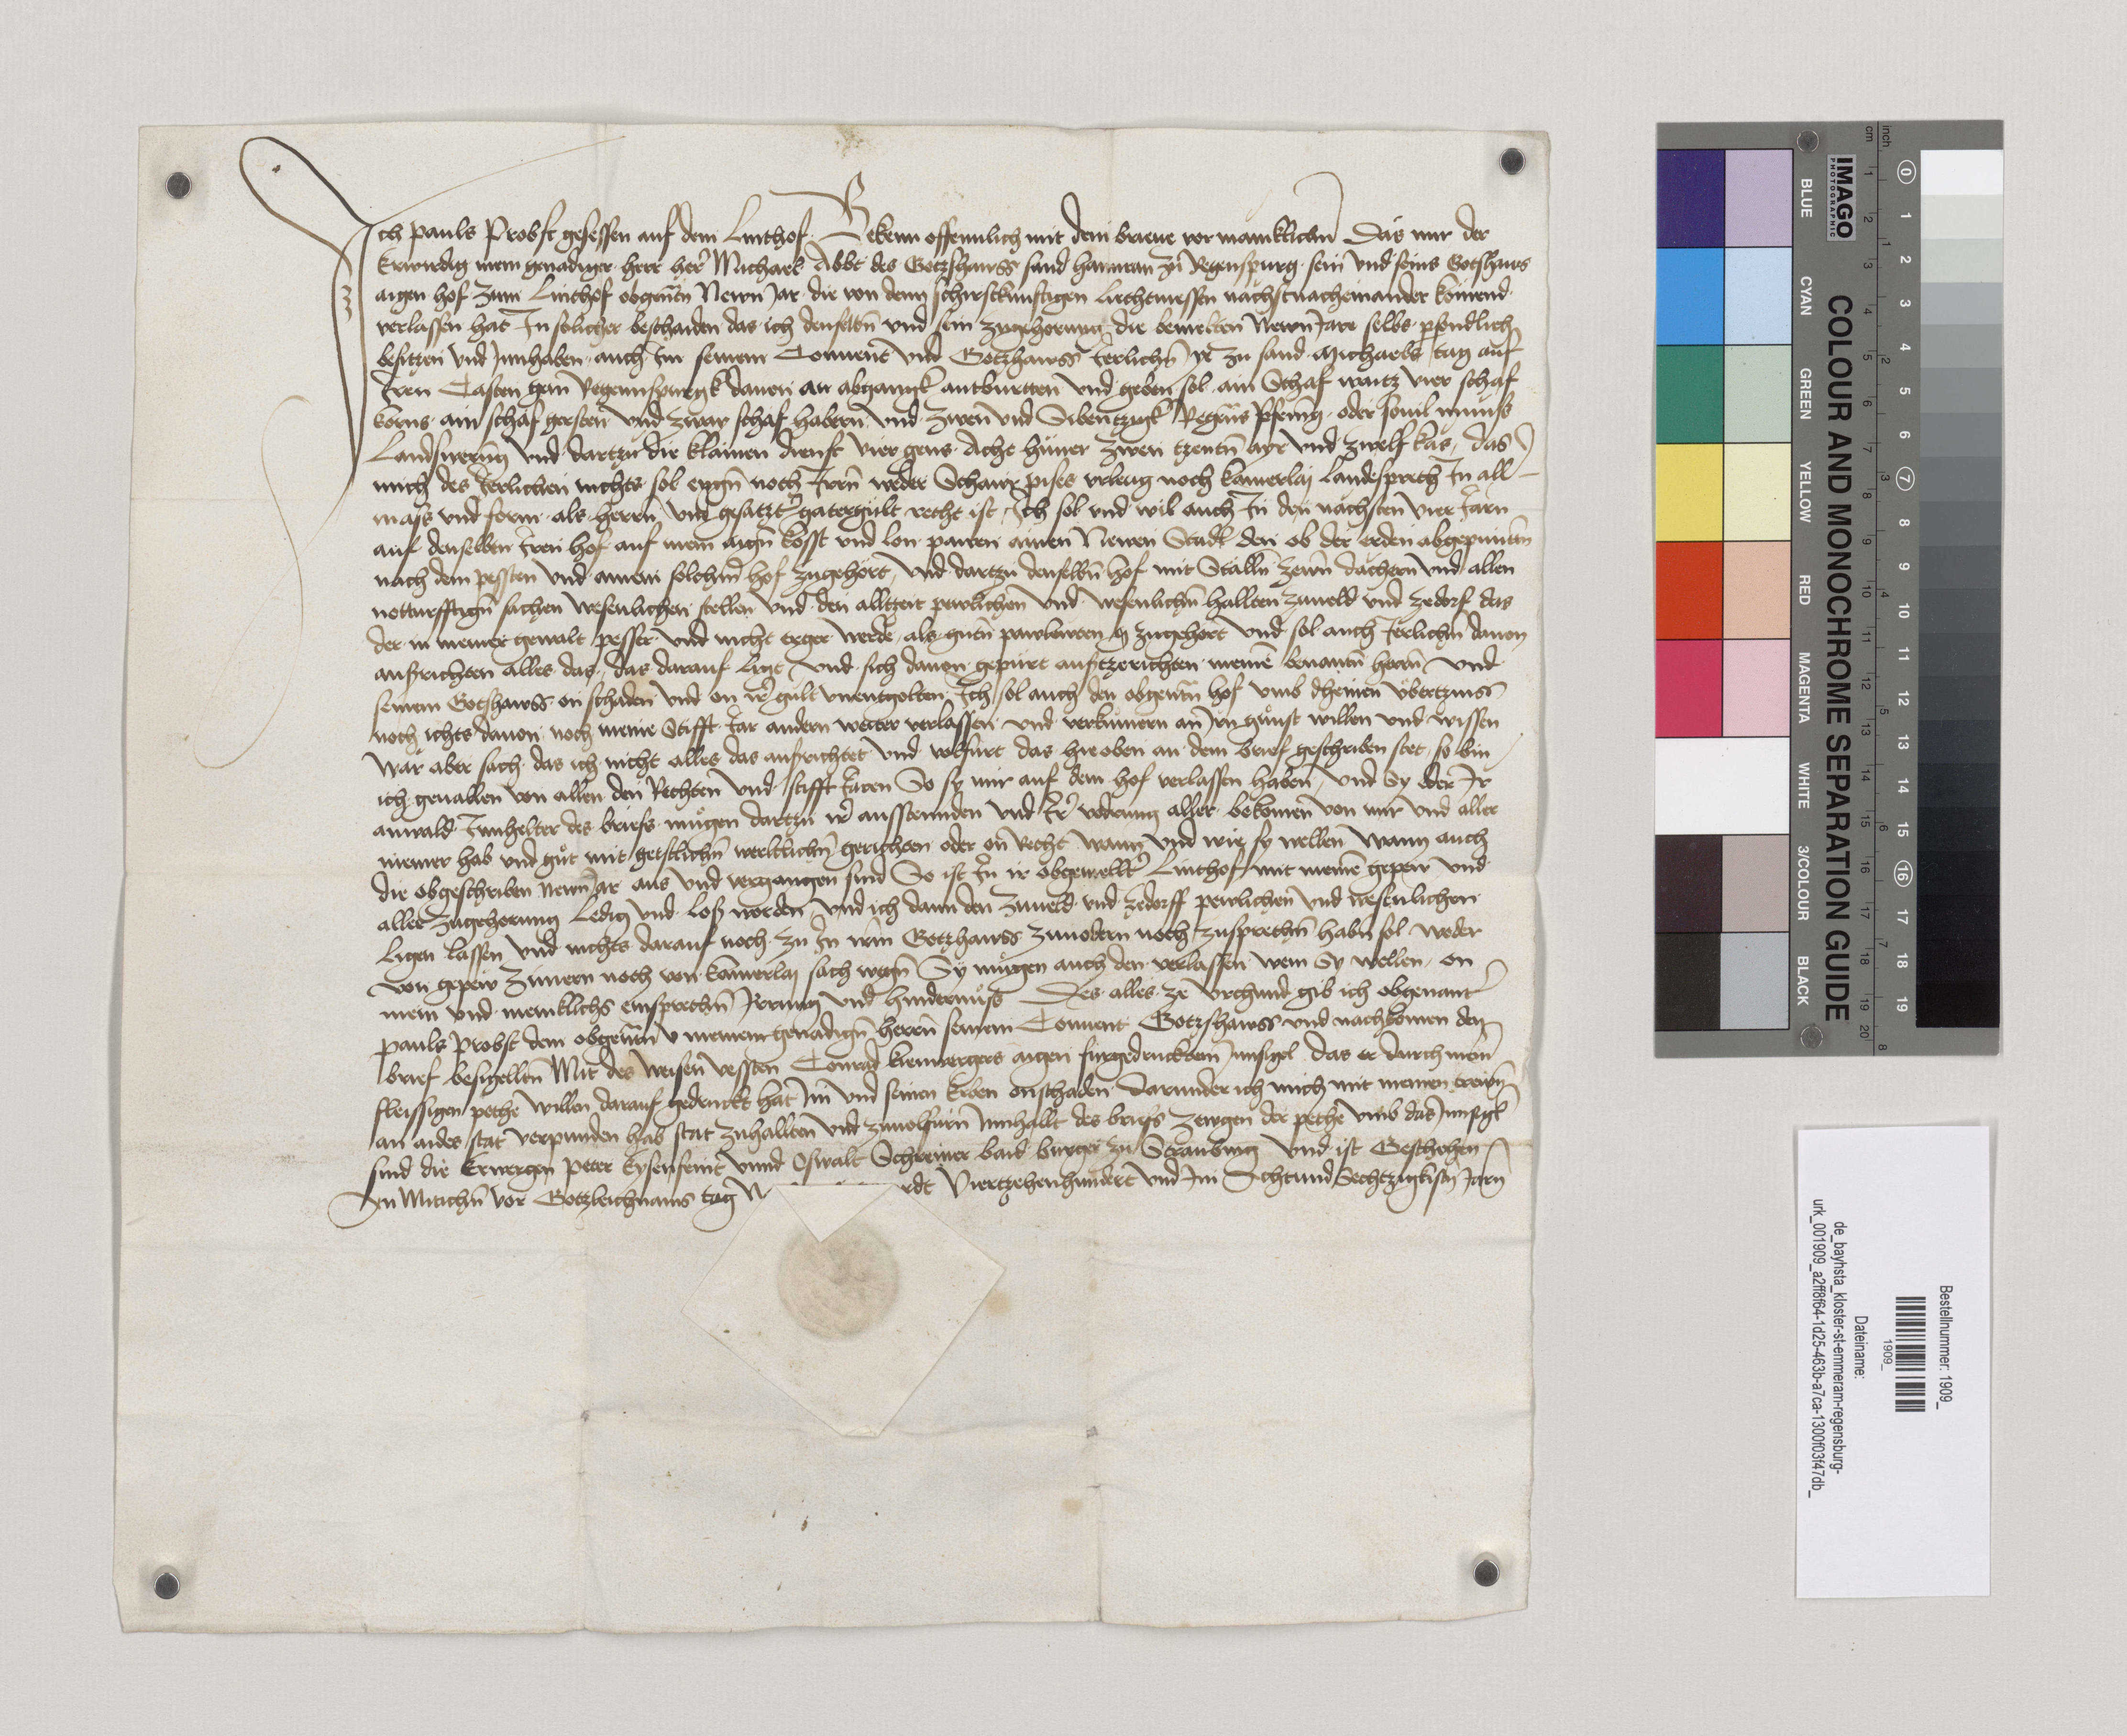 Ich pauls Probst gesessen auf dem Linthof Bekenn offennlich mit dem brieue vor mannklichn̄ Das mir der
Erwirdig mein genadiger herr her Michael Abbt des Gotzshawss sand haimran zu Regenspurg sein vnd seins Gotshaws
aigen hof zum Linthof obgen̄tn Newn Jar die von denn schirstkunftigen Liechtmessen nachstnacheinander komend
verlassen hat In solicher beschaiden das ich denselbn̄ vnd sein zugehorung die bemelten Newn Jare selbs pesndlich
besitzen vnd Innhaben auch Im seinem Conuent vnd Gotzhawss Jerlichn̄ ye zu sand Michaels tag auf
Iren Casten gen Regennspurgk dauon an abganngk antburtten vnd geben sol ain Schaf waitz vier schaf
korns ain schaf gersten vnd zway schaf habern vnd zwen vnd Sibentzigk Regn̄s pfennīg oder souil munss
Landswerung vnd dartzu die klainen dienst vier gens Acht huner zwen tzentn̄ ayr vnd zwelf kās das
mich des Jerlichen nichts sol engn̄ noch Irrn̄ weder Schawr pises vrleug noch kamerlaj Landesprech In all
mass vnd form als herrn vnd gesatzt gatergult recht ist Ich sol vnd wil auch In den nachsten vier Jarn
auf denselben Iren hof auf mein aign̄ kosst vnd lon pawen ainen Newen Stadl den ob der erden abgepunttn̄
nach dem pessten vnd ainem solchn̄ hof zugehort vnd dartzu denselbn̄ hof mit Stalln̄ zewn̄ dachern vnd allen
notturfftign̄ sachen wesenlichen stellen vnd den alltzeit pewlichen vnd wesenlichn̄ hallten zuueld vnd zedorf das
der in meiner gewalt pesser vnd nicht erger werde als gutn̄ pawlewten zugehort vnd sol auch Jerlichn̄ dauon
ausrichten alles das das darauf Ligt vnd sich dauon gepurt ausztzerichten meinē benantn̄ herrn̄ vnd
seinem Gotshawss on schaden vnd on ir gult vnentgolten Ich sol auch den obgen̄tn hof vmb dheinen vbertzinss
noch ichts dauon noch meine Stifft Jar andern weiter verlassen vnd verkumern an Irn gunst willen vnd wissen
War aber sach das ich nicht alles das ausrichtet vnd volfurt das hie oben an dem brief geschriben stet so bin
ich geuallen von allen den Rechten vnd stifft Jaren So sy mir auf dem hof verlassen haben vnd Sy oder Ir
anwald Innhelter des briefs mugen dartzu ir ausstennden vnd Ir vodrung aller bekomen von mir vnd aller
meiner hab vnd gut mit geistlichn̄ werltlichn̄ gerichten oder on Recht wann vnd wie sy wellen Wann auch
die obgeschriben Newn Jar aus vnd vergangen sind So ist In ir obgemellt Linthof mit meinē gepew vnd
aller zugehorung Ledig vnd Loss worden vnd ich dann den zuueld vnd zedorff pewlichen vnd wesenlichen
Ligen lassen vnd nichts darauf noch zu In irm Gotzhawss zuuodern noch zusprechn̄ habn̄ sol weder
von gepew zimern noch von kainerlaj sach wegn̄ Sy mugen auch den verlassen wem Sy wellen on
mein vnd menikliches einsprechn̄ Irrung vnd hindernuss Des alles ze vrchund gib ich obgenant
pauls Probst dem obgen̄tn meinem genadign̄ herrn̄ seinem Conuent Gotzshawss vnd nachkomen den
brief besigelltn̄ Mit des weisen vessten Conrad aigen furgedrucktem Innsigel das er durch mein
fleissigen pethe willen darauf gedruckt hat Im vnd seinen Erben onschaden Darunder ich mich mit meinen trewn̄
an aides stat verpunden hab stat zuhallten vnd zuuolfurn̄ Innhallt des briefs Zewgen der pethe vmb das Innsigl
sind die Erwergen Peter Eysenseint vnnd Oswalt Schreiner baid burger zu Straubing Vnd ist Geschehen
An Mitichn̄ vor Gotzleichnams tag Viertzehenhundert vnd Im Achtund Sechtzigkistn̄ Jarn̄
IMAGO
PHOTOGRAPHIC
COLOUR AND MONOCHROME SEPARATION GUIDE
BLUE CYAN GREEN YELLOW RED MAGENTA WHITE 3/COLOUR BLACK
cm 1 2 3 4 5 6 7 8 9 10 11 12 13 14 15 16 17 18 19 20
inch 1 2 3 4 5 6 7 8
0 1 2 3 4 5 6 7 8 9 10 11 12 13 14 15 16 17 18 19
Bestellnummer: 1909_
1909_
Dateiname:
de_bayhsta_kloster-st-emmeram-regensburg-
urk_001909_a2ff8f64-1d25-463b-a7ca-1300f03f47db_